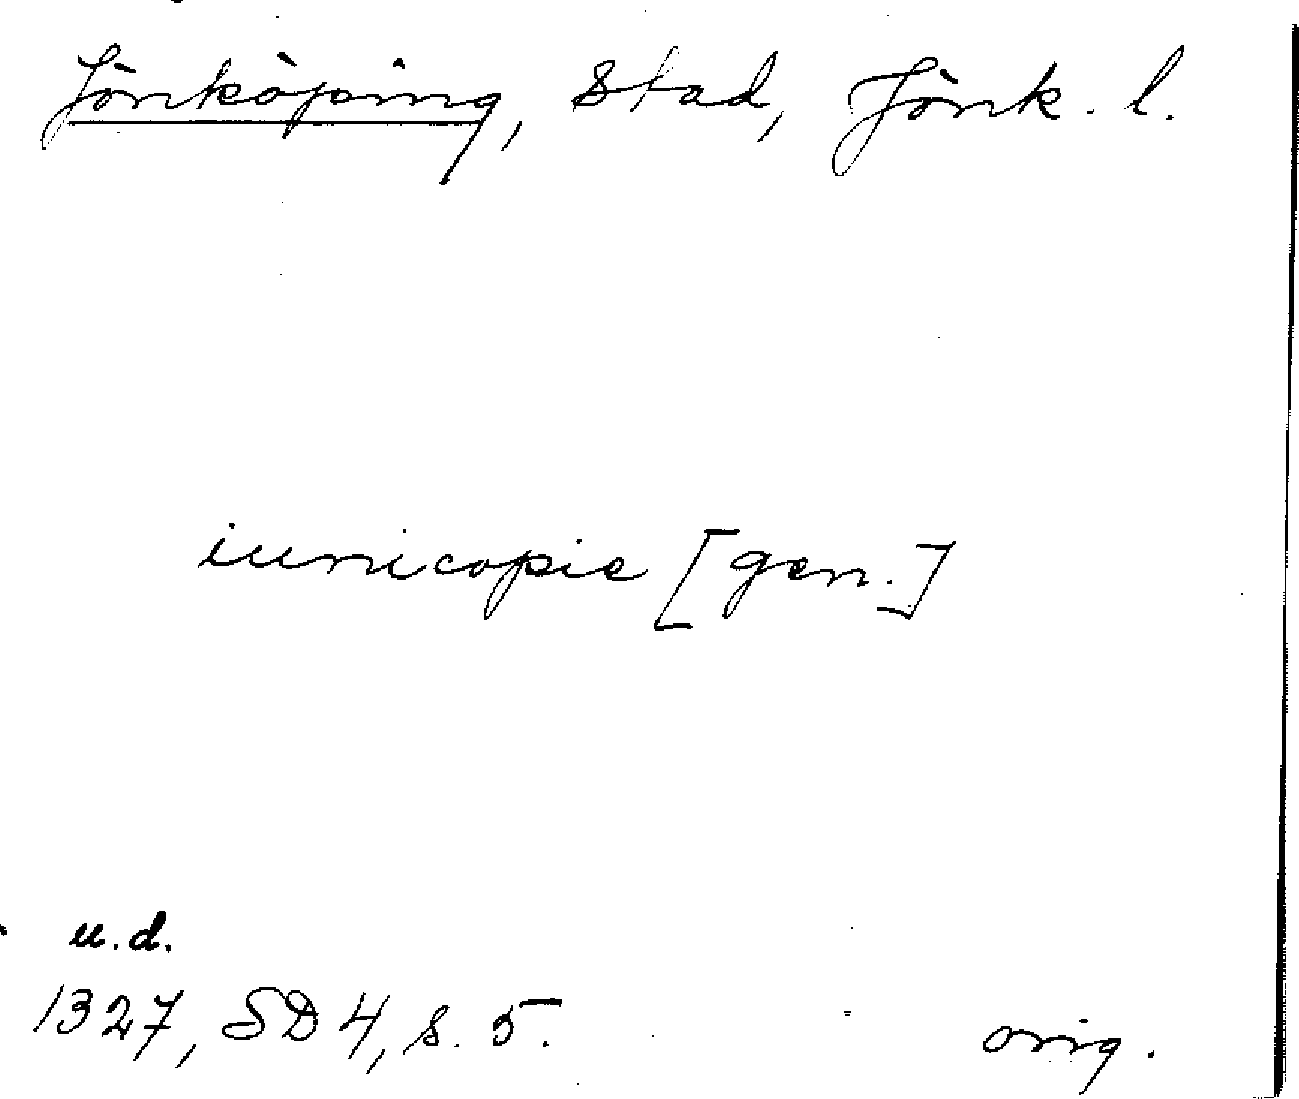 Jönköping, stad, Jönk. l.
iunicopie [gen.]
u.d.
1327, SD 4, s. 5.
orig.